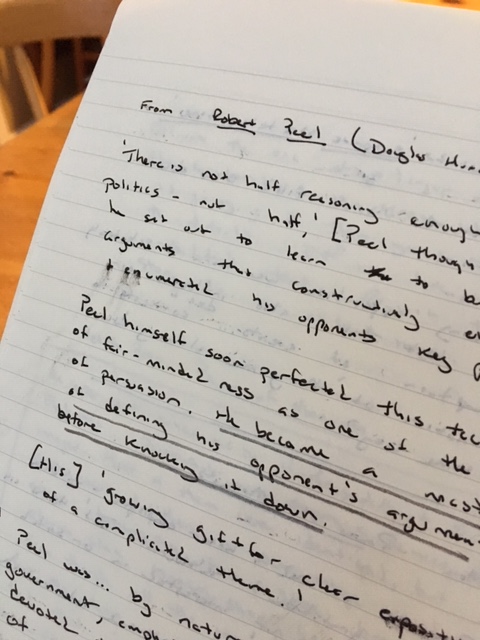 From Robert Peel (Douglas Hur
'There is not half reasoning enough
politics - not half.' [Peel though
he set out to learn to b
arguments that constructively e
enumerated his opponents key
Peel himself soon perfected this tec
of fair-minded ness as one of the
of persuasion. He became a mast
of defining his opponent's argumen
before knocking it down.
[His] 'growing gift for clear exposit
of a complicated theme.'
Peel was... by natur
government,
devoted
of